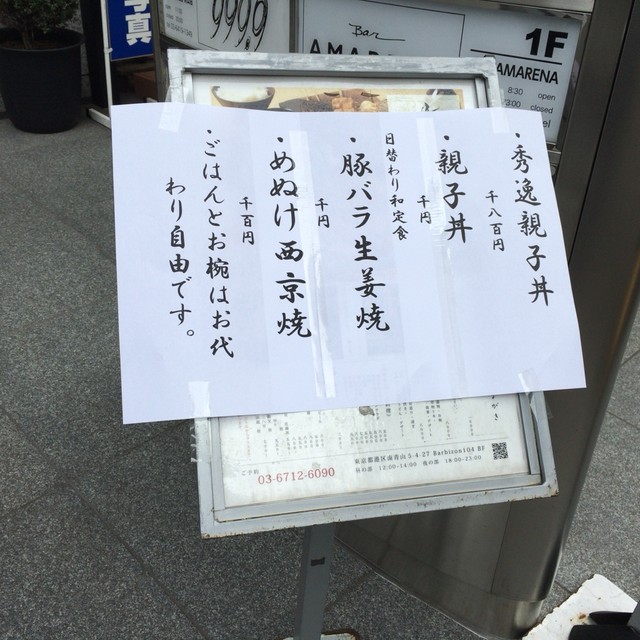 ・秀逸親子丼
千八百円
・親子丼
千円
日替わり和定食
・豚バラ生姜焼
千円
・めぬけ西京焼
千百円
・ごはんとお椀はお代
わり自由です。
写真
999.9
Bar
1F
AMARENA
8:30 open
closed
03-6712-6090
東京都港区南青山5-4-27 Barbizon104 B1
昼の部 12:00-14:00 夜の部 18:00-23:00